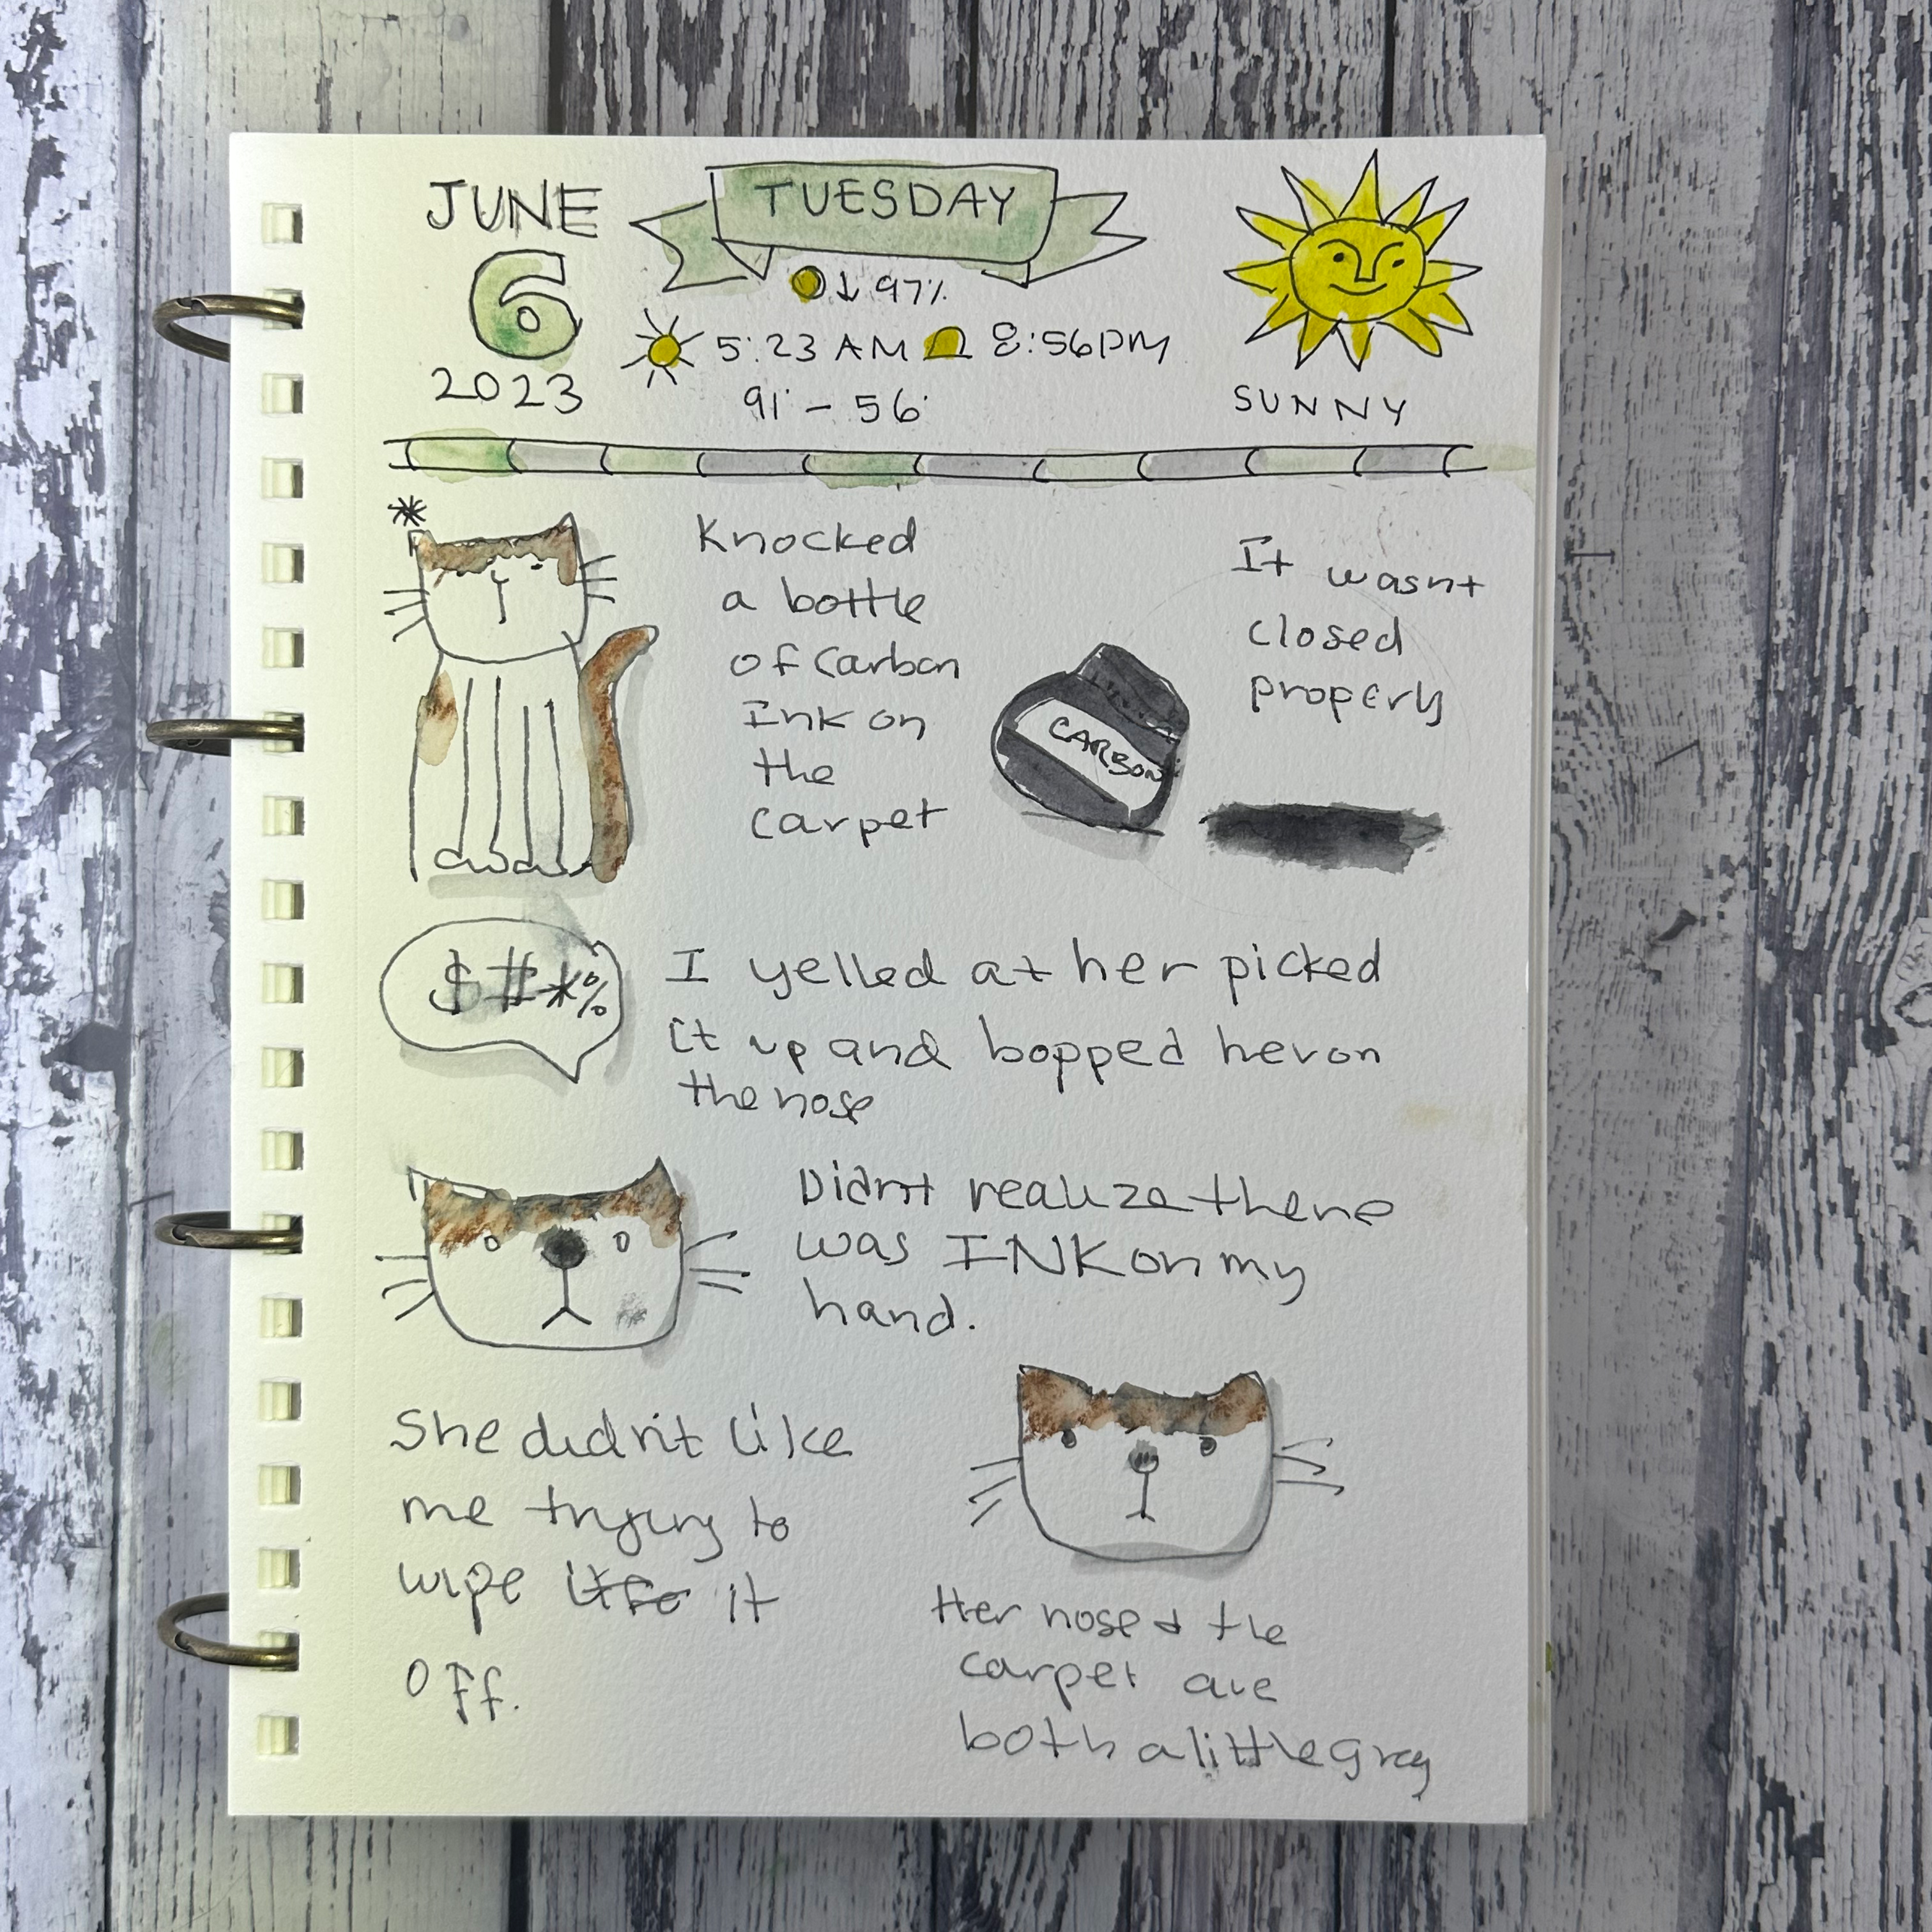 JUNE
6
2023
TUESDAY
↓ 97%
5:23 AM 8:56PM
91° - 56°
SUNNY
*
Knocked
a bottle
of Carbon
Ink on
the
carpet
CARBON
It wasnt
closed
properly
$#*%
I yelled at her picked
it up and bopped her on
the nose
Didn't realize there
was INK on my
hand.
She didn't like
me trying to
wipe it
off.
Her nose & the
carpet are
both a little grey